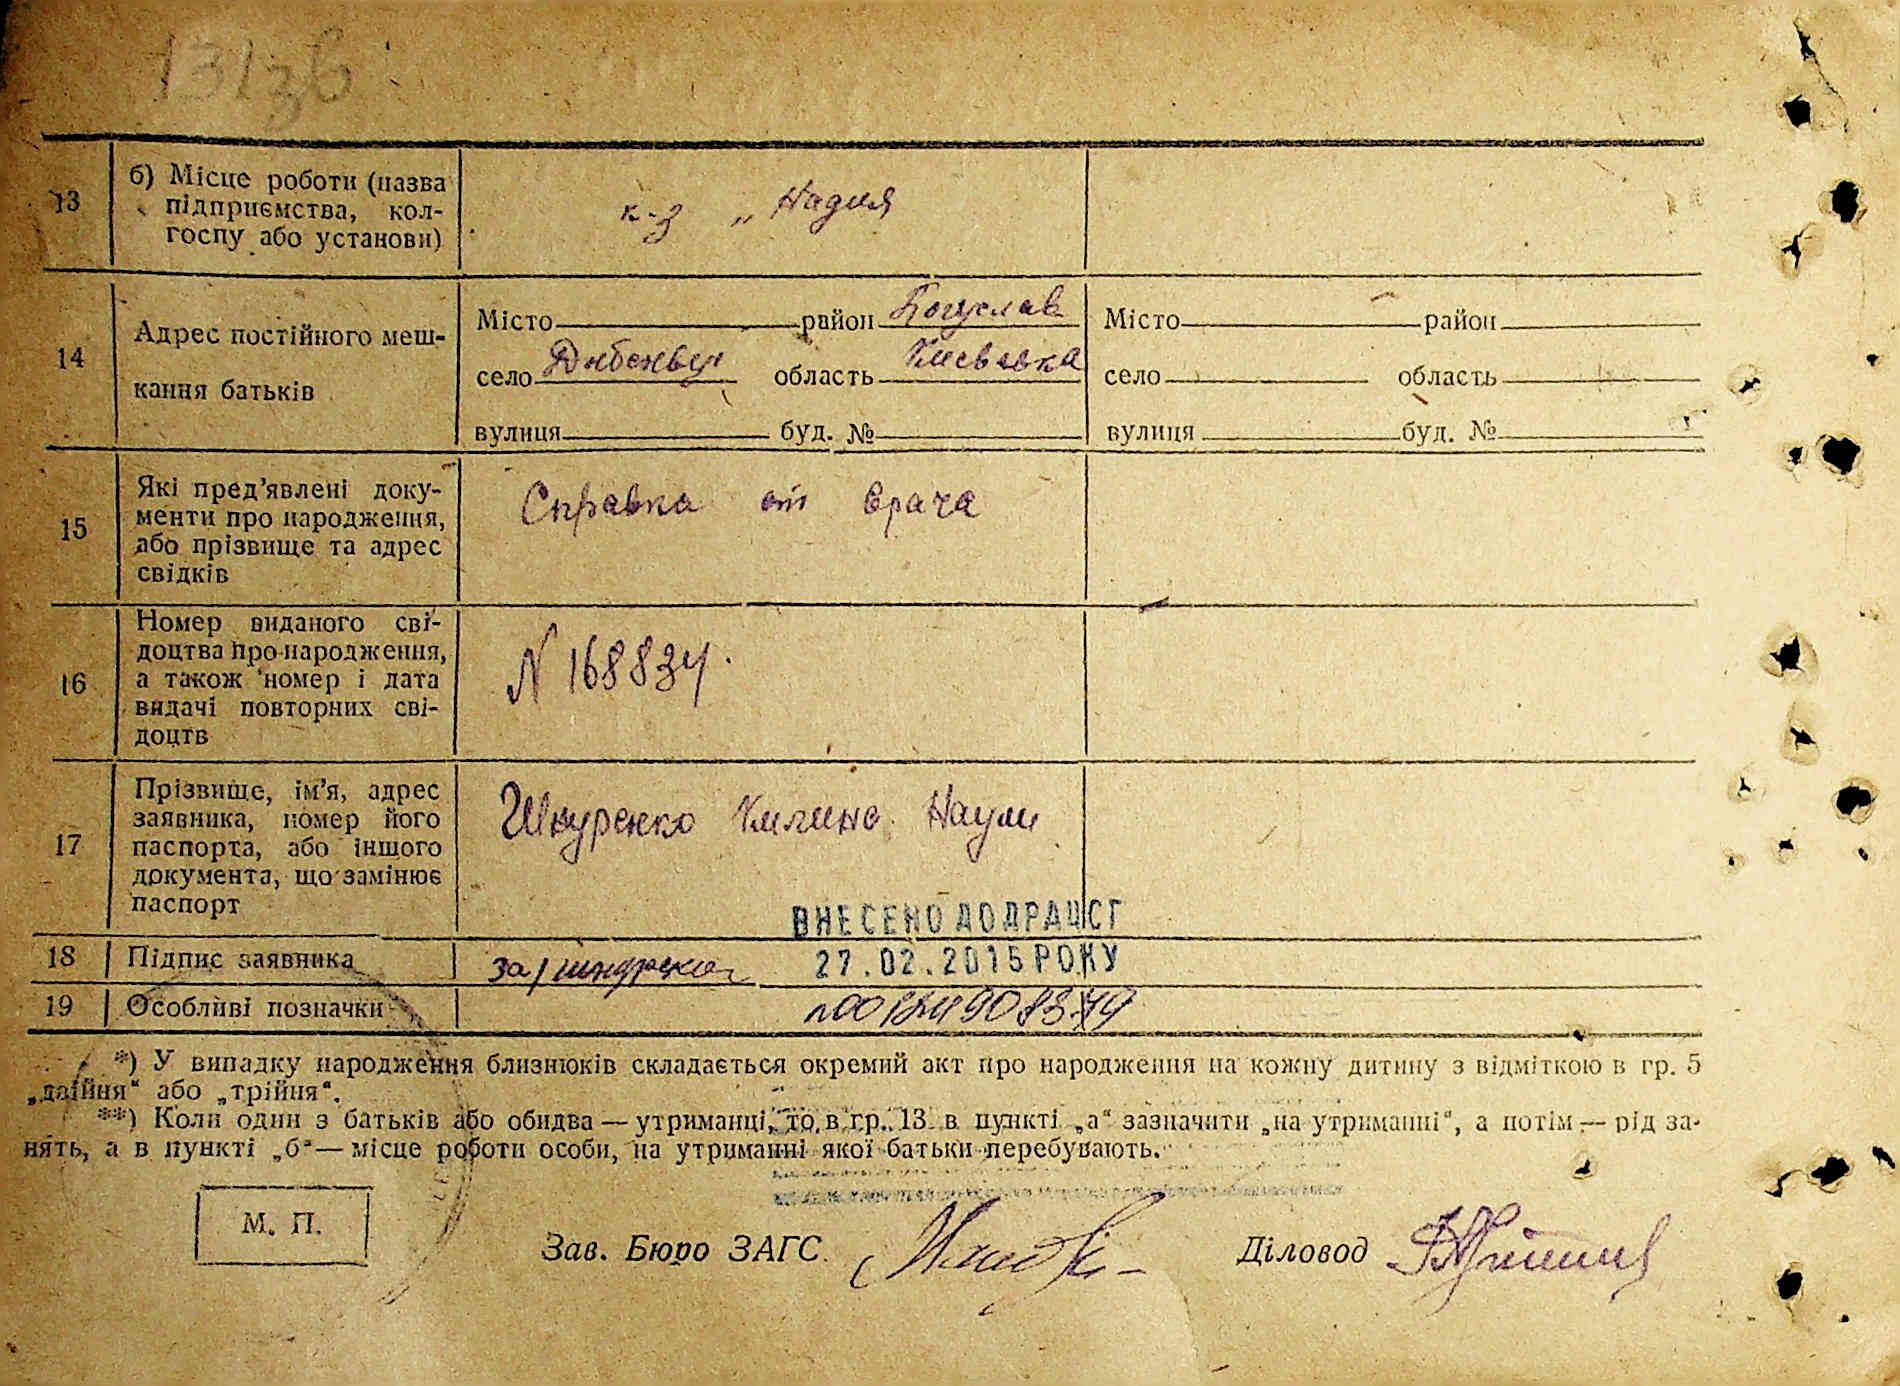 131зб
13
б) Місце роботи (назва
підприємства, кол-
госпу або установи)
к-з „Надия
14
Адрес постійного меш-
кання батьків
Місто район Богуслав
село область Киевska
вулиця буд. №
Місто район
село область
вулиця буд. №
15
Які пред’явлені доку-
менти про народження,
або прізвище та адрес
свідків
Справка от врача
16
Номер виданого сві-
доцтва про народження,
а також номер і дата
видачі повторних сві-
доцтв
N 168834.
17
Прізвище, ім’я, адрес
заявника, номер його
паспорта, або іншого
документа, що замінює
паспорт
Шкуренко Наум
ВНЕСЕНО ДО ДРАЦСГ
18
Підпис заявника
за
27.02.2015 РОКУ
19
Особливі позначки
*) У випадку народження близнюків складається окремий акт про народження на кожну дитину з відміткою в гр. 5
„двійня“ або „трійня“.
**) Коли один з батьків або обидва — утриманці, то в гр. 13 в пункті „а“ зазначити „на утриманні“, а потім — рід за-
нять, а в пункті „б“ — місце роботи особи, на утриманні якої батьки перебувають.
М. П.
Зав. Бюро ЗАГС
Діловод